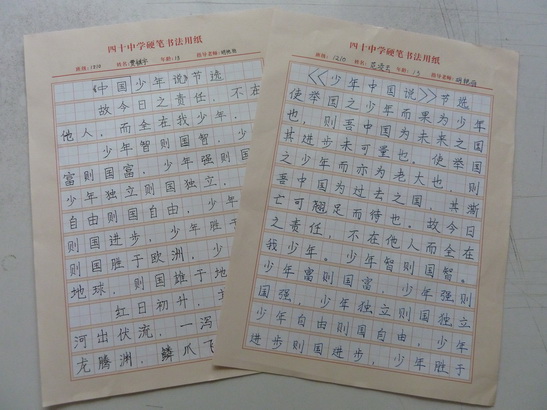 四十中学硬笔书法用纸
班级：1210 姓名： 年龄：13 指导老师：
《中国少年说》节选
故今日之责任，不在
他人，而全在我少年，
少年智则国智，少
富则国富，少年强则国
少年独立则国独立，
自由则国自由，少年
则国进步，少年胜于
则国胜于欧洲，少
地球，则国雄于地
红日初升，
河出伏流，一泻
龙腾渊，鳞爪飞
四十中学硬笔书法用纸
班级：1210 姓名： 年龄：13 指导老师：
《少年中国说》节选
使举国之少年而果为少年
也，则吾中国为未来之国
其进步未可量也，使举国
之少年而亦为老大也，则
吾中国为过去之国，其澌
亡可翘足而待也。故今日
之责任，不在他人而全在
我少年。少年智则国智。
少年富则国富，少年强则
国强，少年独立则国独立
少年自由则国自由，少年
进步则国进步，少年胜于